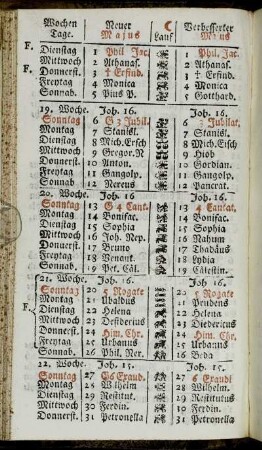 Wochen Tage. Neuer Majus C Lauf Verbesserter Majus
F. Dienstag 1 Phil. Jac. 1 Phil. Jac.
Mittwoch 2 Athanas. 2 Athanas.
F. Donnerst. 3 † Erfind. 3 † Erfind.
Freytag 4 Monica 4 Monica
Sonnab. 5 Pius P. 5 Gotthard.
19. Woche. Joh. 16. Joh. 16.
Sonntag 6 G 3 Jubil. 6 3 Jubilat.
Montag 7 Stanisl. 7 Stanisl.
Dienstag 8 Mich. Ersch 8 Mich. Ersch
Mittwoch 9 Gregor. N 9 Hiob
Donnerst. 10 Anton. 10 Gordian.
Freytag 11 Gangolp. 11 Gangolp.
Sonnab 12 Nereus 12 Pancrat.
20. Woche. Joh. 16 Joh. 16.
Sonntag 13 G 4 Cant. 13 4 Cantat.
Montag 14 Bonifac. 14 Bonifac.
Dienstag 15 Sophia 15 Sophia
Mittwoch 16 Joh. Nep. 16 Nahum
Donnerst. 17 Bruno 17 Thadäus
Freytag 18 Venant. 18 Lydia
Sonnab. 19 Pet. Cäl. 19 Cälestin.
21. Woche. Joh. 16. Joh. 16.
Sonntag 20 5 Rogate 20 5 Rogate
Montag 21 Ubaldus 21 Prudens
F. Dienstag 22 Helena 22 Helena
Mittwoch 23 Desiderius 23 Diedericus
Donnerst. 24 Him. Chr. 24 Him. Chr.
Freytag 25 Urbanus 25 Urbanus
Sonnab. 26 Phil. Ner. 26 Beda
22. Woche. Joh. 15. Joh. 15.
Sonntag 27 G 6 Exaud. 27 6 Exaudi
Montag 28 Wilhelm 28 Wilhelm.
Dienstag 29 Restitut. 29 Restitut.
Mittwoch 30 Ferdin. 30 Ferdin.
Donnerst. 31 Petronella 31 Petronella